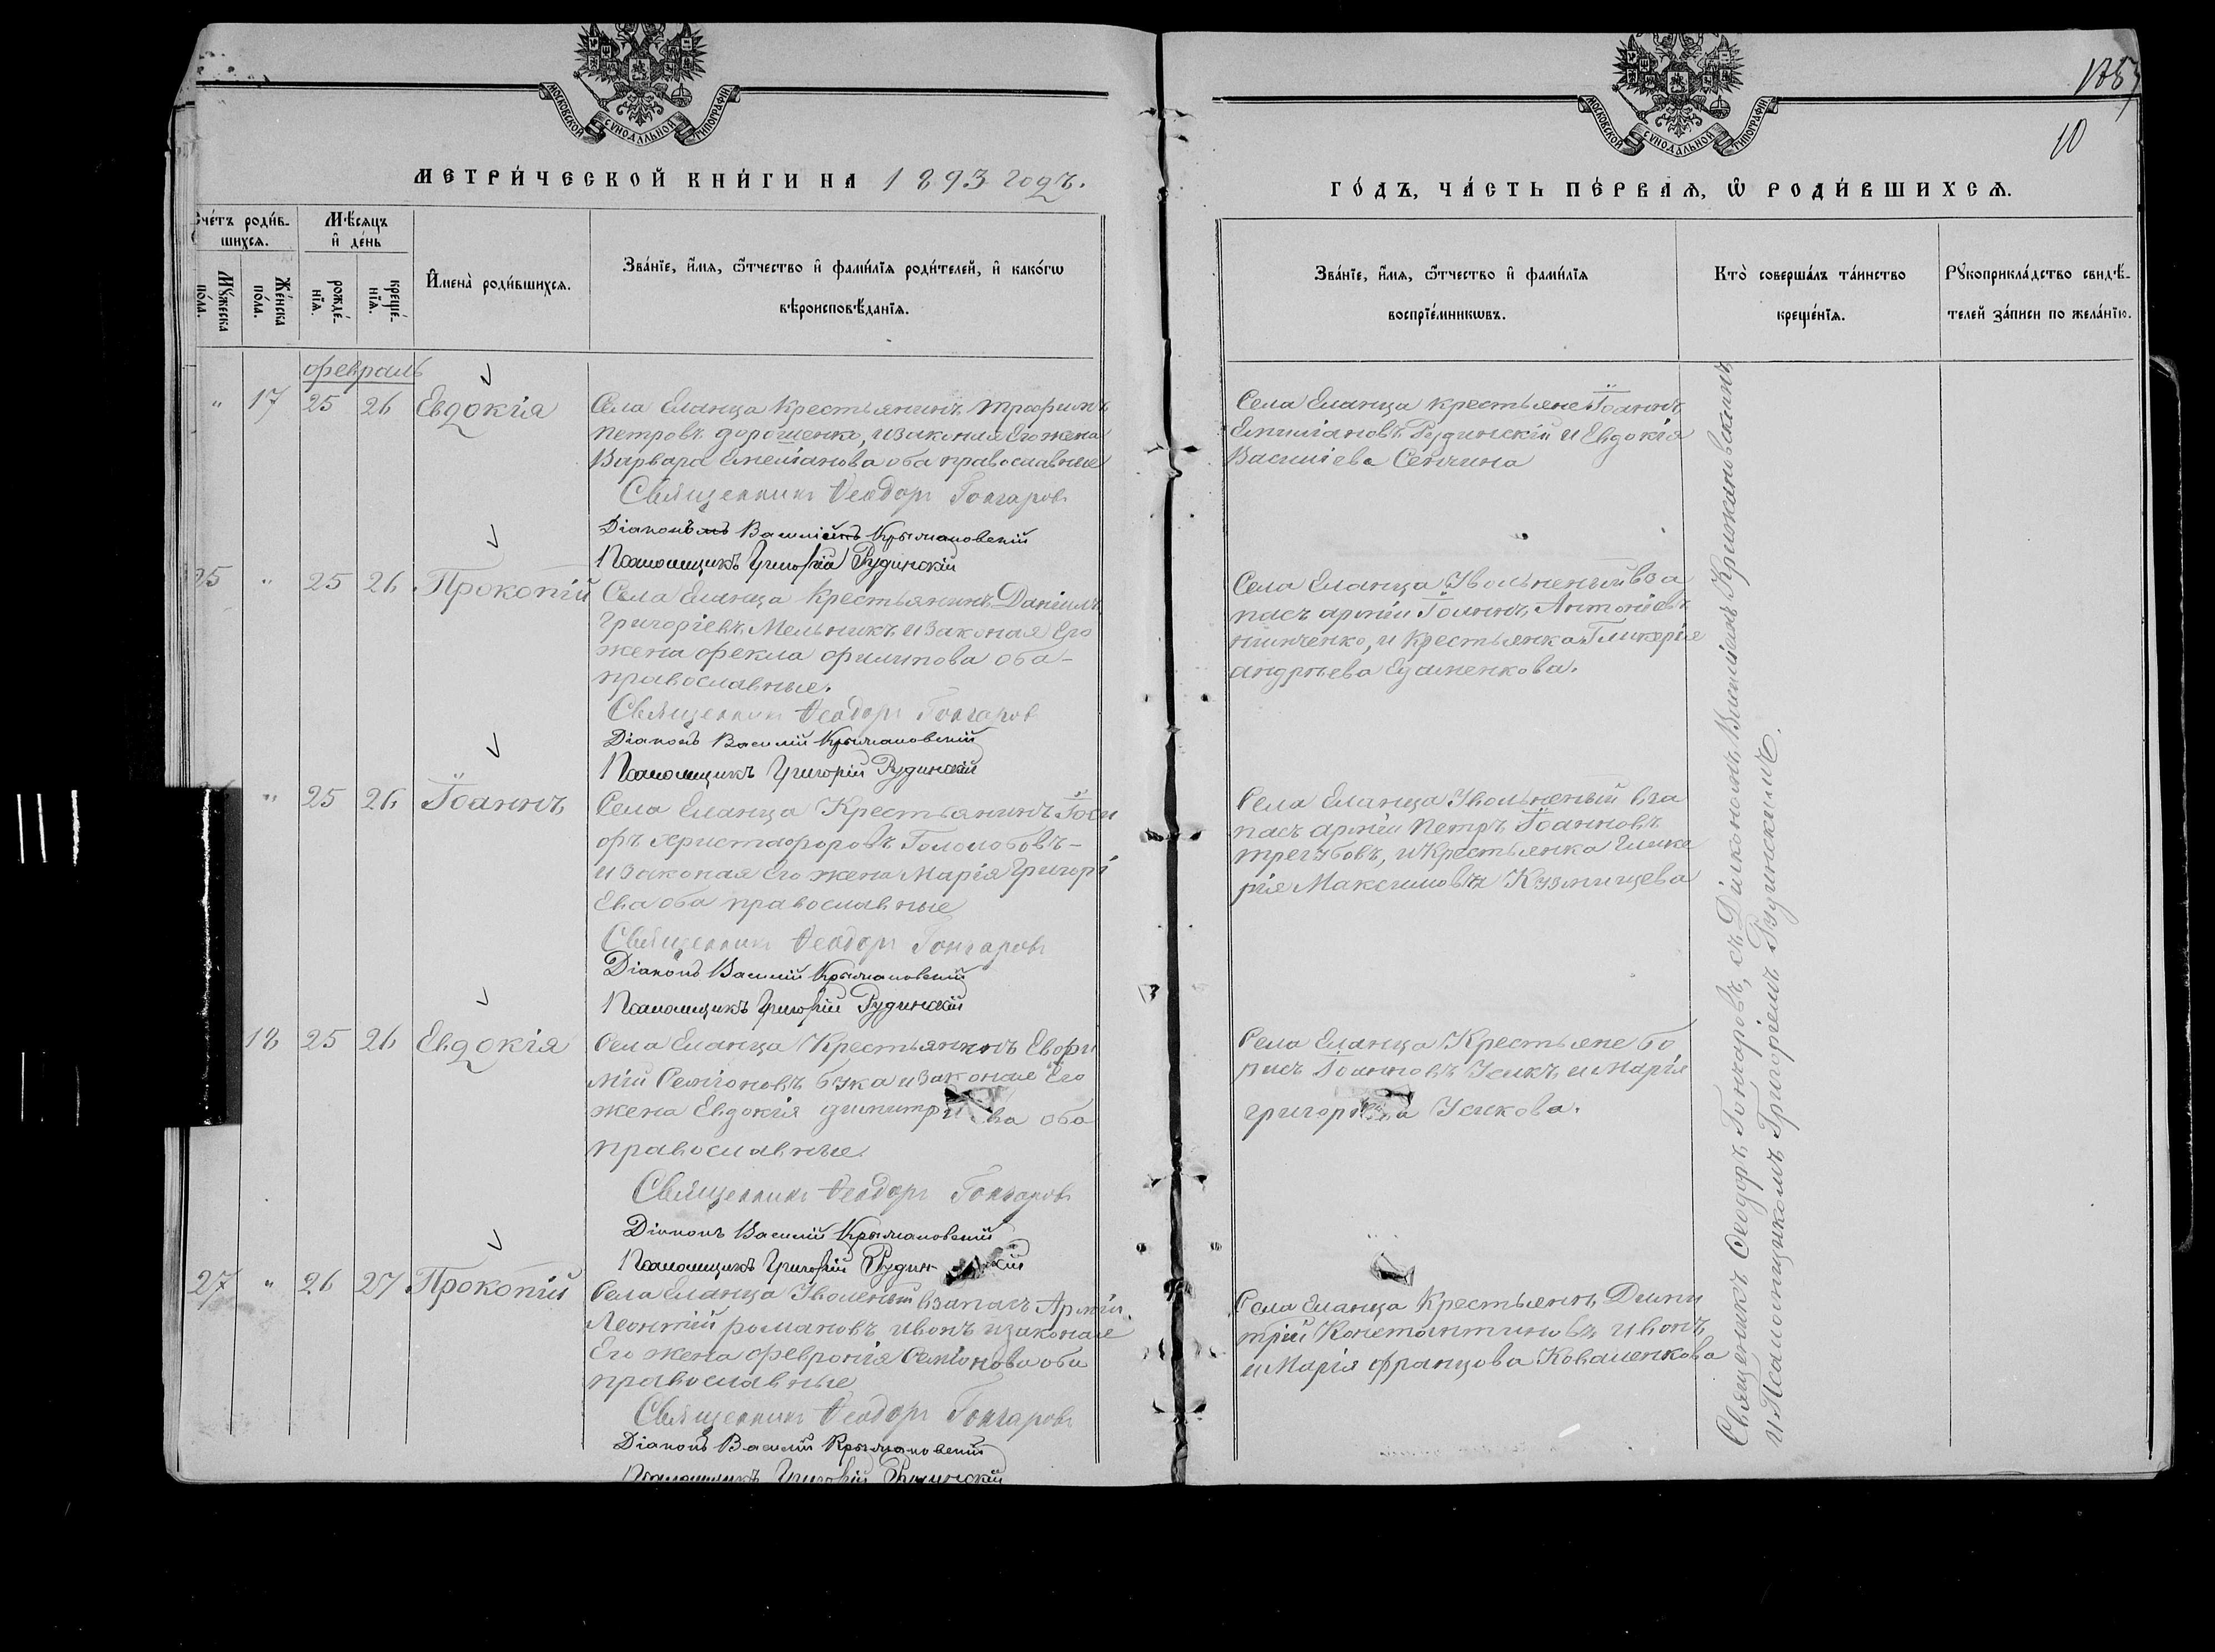 МОСКОВСКОЙ СѴНОДАЛЬНОЙ ТИПОГРАФІИ
МЕТРИ́ЧЕСКОЙ КНИ́ГИ НА 1893 годъ.
Сче́тъ роди́в-
шихсѧ.
Мꙋ́жеска по́ла.
Же́нска по́ла.
Мѣ́сѧцъ и҆ де́нь
рожде́-нїѧ.
креще́-нїѧ.
И҆мена̀ роди́вшихсѧ.
Зва́нїе, и҆́мѧ, ѻ҆́тчество и҆ фами́лїѧ роди́телей, и҆ како́гѡ
вѣроисповѣ́данїѧ.
февраль
" 17 25 26 Евдокія
Села Еланца Крестьянинъ Трофимъ
Петровъ Дорошенко, и законая Его жена
Варвара Емеліанова оба православные
Священникъ Ѳеодоръ Гончаровъ
Діаконъ Василій Крыжановскій
Псаломщикъ Григорій Рудинскій
25 " 25 26 Прокопій
Села Еланца Крестьянинъ Даніилъ
Григоріевъ Мельникъ и законая Его
жена Фекла Филипова оба-
православные.
Священникъ Ѳеодоръ Гончаровъ
Діаконъ Василій Крыжановскій
Псаломщикъ Григорій Рудинскій
" 25 26 Іоаннъ
Села Еланца Крестьянинъ Іоси
фъ Христофоровъ Гололобовъ-
и законая Его жена Марія Григорі
Ева оба православные
Священникъ Ѳеодоръ Гончаровъ
Діаконъ Василій Крыжановскій
Псаломщикъ Григорій Рудинскій
18 25 26 Евдокія
Села Еланца Крестьянинъ Евфи
мій Семіоновъ Бука и законае Его
жена Евдокія Димитріева оба
православные.
Священникъ Ѳеодоръ Гончаровъ
Діаконъ Василій Крыжановскій
Псаломщикъ Григорій Рудинскій
27 " 26 27 Прокопій
Села Еланца Уволеный взапасъ Арміи
Леонтій Романовъ Ивонъ и законае
Его жена Февронія Семіонова оба
православные
Священникъ Ѳеодоръ Гончаровъ
Діаконъ Василій Крыжановскій
Псаломщикъ Григорій Рудинскій
10
МОСКОВСКОЙ СѴНОДАЛЬНОЙ ТИПОГРАФІИ
ГО́ДЪ, ЧА́СТЬ ПЕ́РВАѦ, Ѡ҆ РОДИ́ВШИХСѦ.
Зва́нїе, и҆́мѧ, ѻ҆́тчество и҆ фами́лїѧ
воспрїе́мникѡвъ.
Кто̀ соверша́лъ та́инство
креще́нїѧ.
Рꙋкоприкла́дство свидѣ́-
телей за́писи по жела́нїю.
Села Еланца крестьяне Іоаннъ
Емиліановъ Рудинскій и Евдокія
Василіева Сенчина
Села Еланца Увольненый вза
пасъ арміи Іоаннъ Антоніевъ
и Крестьянка Гликерія
Андрѣева
Села Еланца Увольненый вза
пасъ арміи Петръ Іоанновъ
Трегубовъ, и Крестьянка Глике
рія Максимовна Кузмищева
Села Еланца Крестьяне Бо
рисъ Іоанновъ Усикъ и Марія
Григоріева Усикова.
Села Еланца Крестьянъ Дими
трій Константиновъ Ивонъ
и Марія Францова Коваленкова
Священникъ Ѳеодоръ Гончаровъ, съ Діакономъ Василіемъ Крижановскимъ
и Псаломщикомъ Григоріемъ Рудинскимъ.